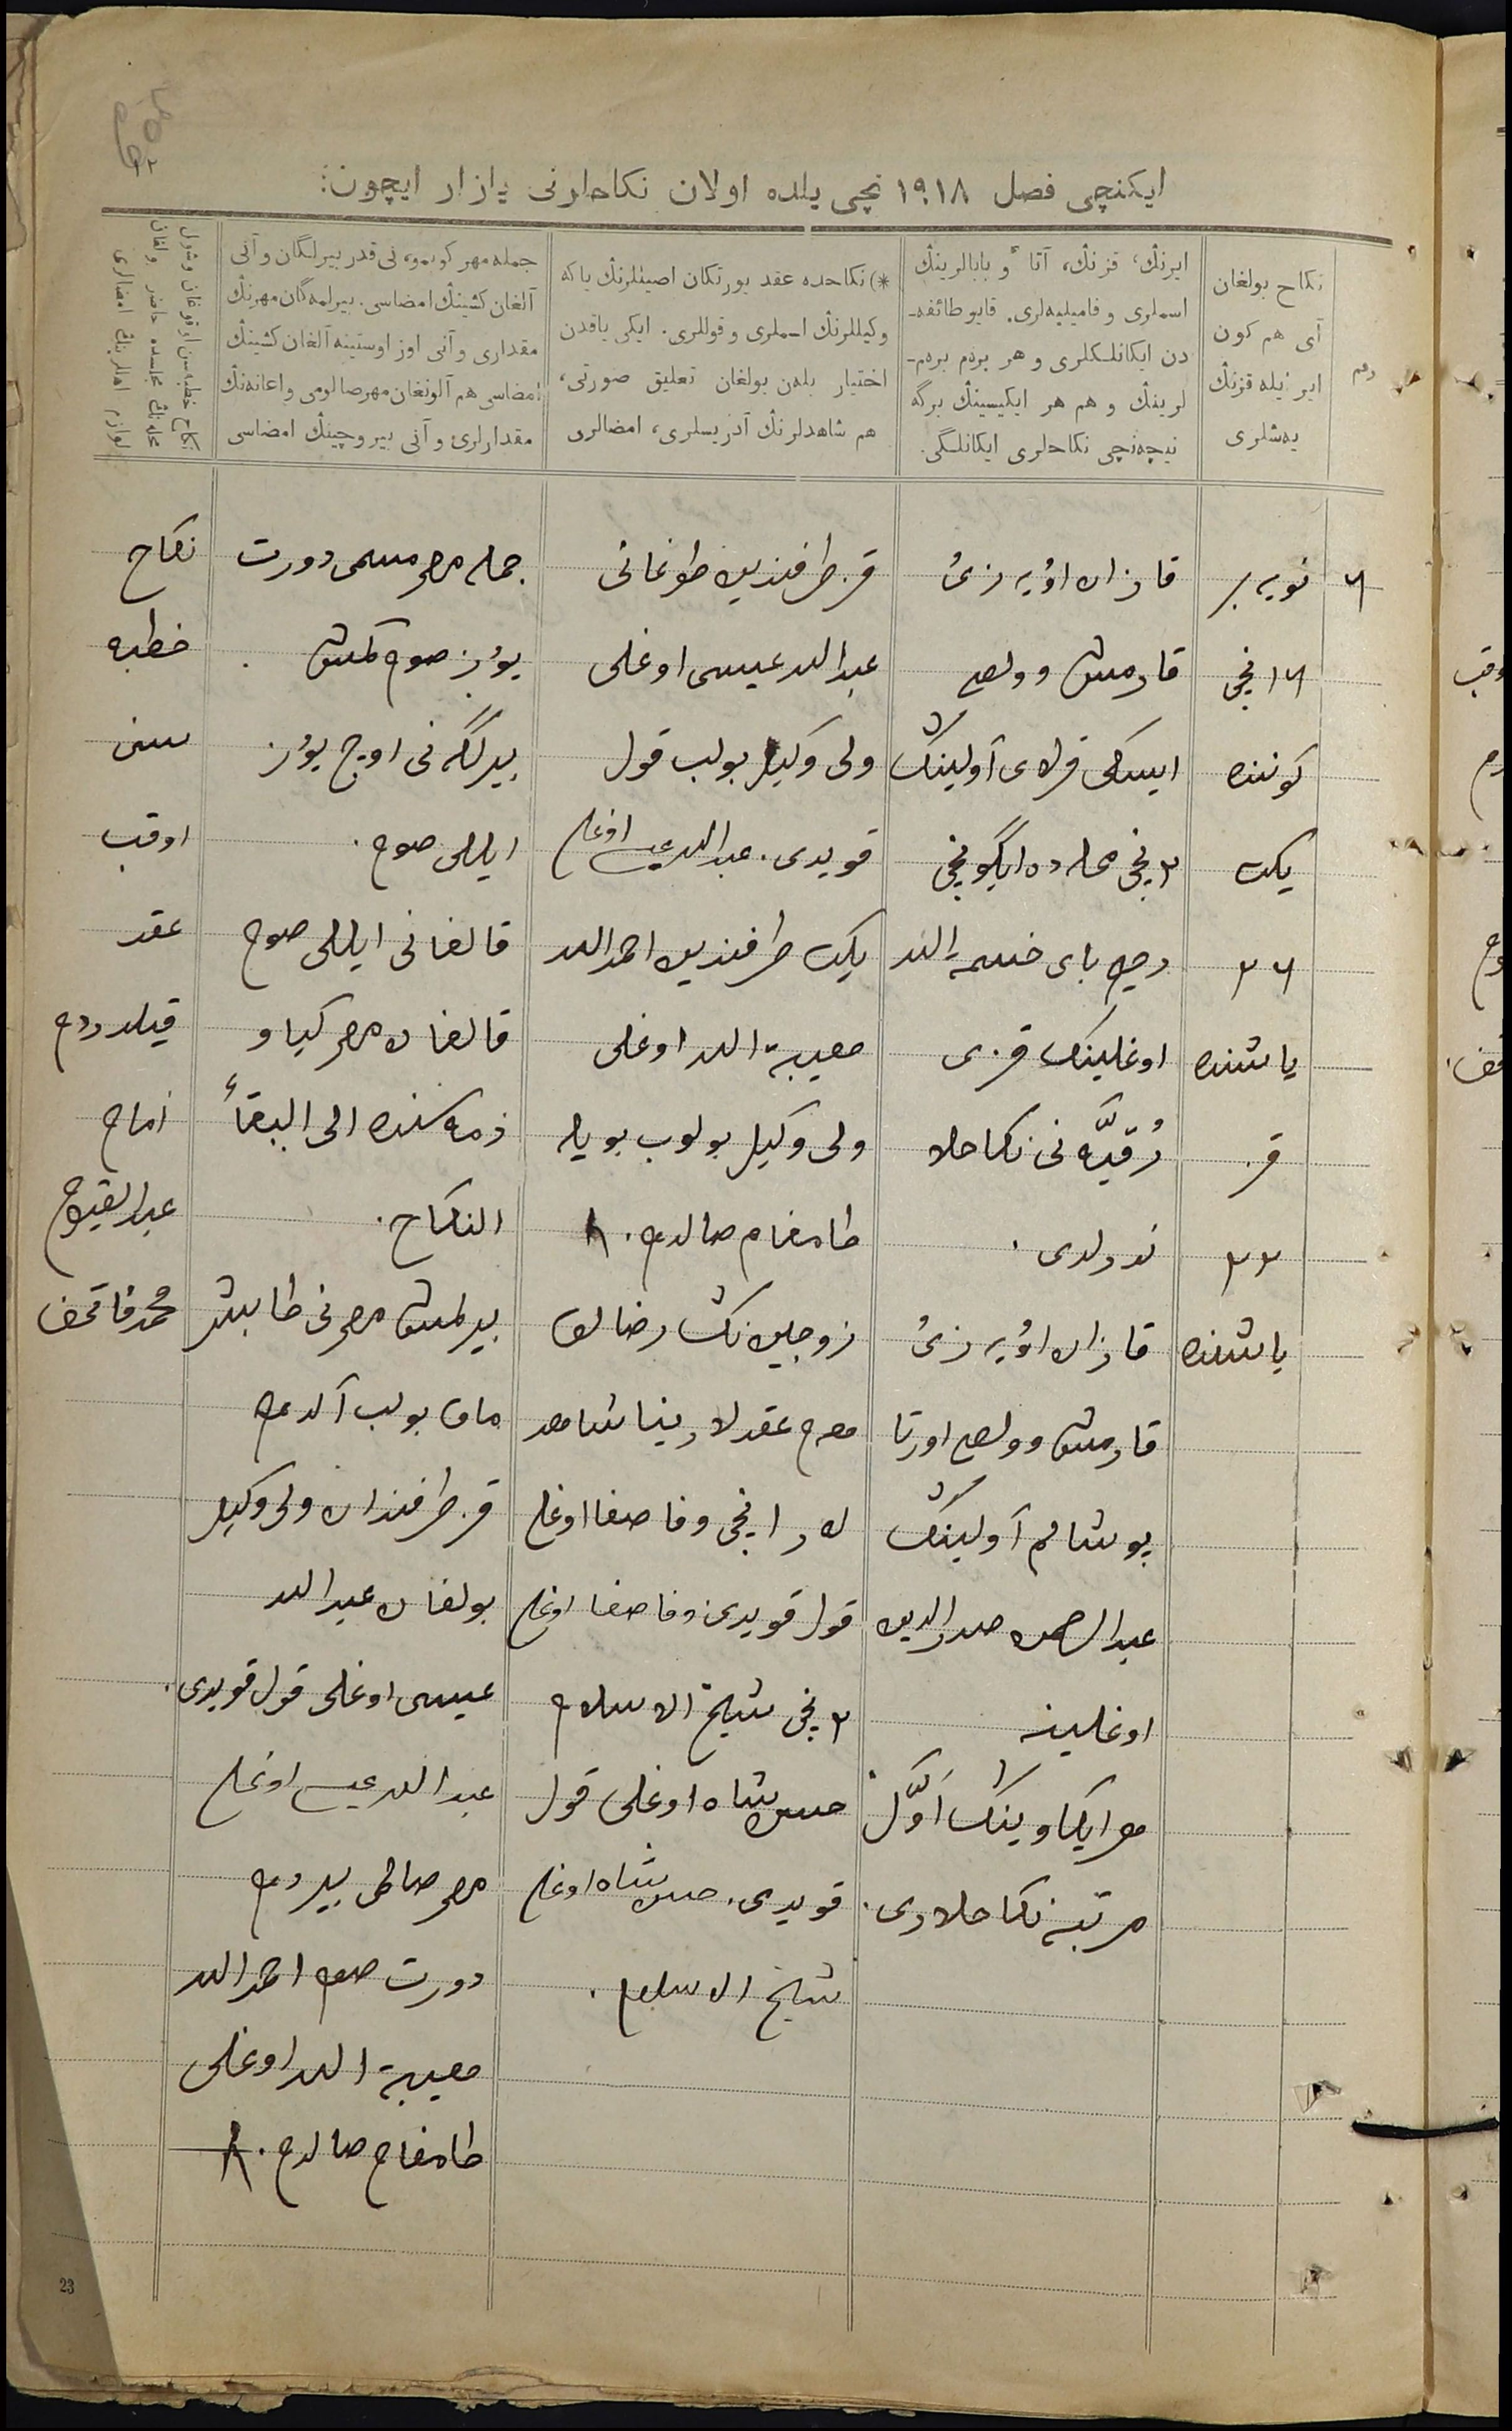 ایكنچی فصل ۱۹۱۸ نچی یلده اولان نكاحلرنی یازار ایچون:
رقم
نكاح بولغان
آی هم كون
ایر ایله قزنڭ
یه‌شلری
ایرنڭ، قزنڭ، آتا و بابالرینڭ
اسملری و فامیلیه‌لری. قایو طائفه‌
دن ایكانلكلری و هر برم برم‌
لرینڭ و هم هر ایكیسینڭ برگه
نیچه‌نچی نكاحلری ایكانلگی.
*) نكاحده عقد یورتكان اصیللرنڭ یاكه
وكیللرنڭ اسملری و قوللری. ایكی یاقدن
اختیار بله‌ن بولغان تعلیق صورتی،
هم شاهدلرنڭ آدریسلری، امضالری
جمله مهر كومو، نی قدر بیرلگان و آنی
آلغان كشینڭ امضاسی. بیرلمه‌گان مهرنڭ
مقداری و آنی اوز اوستینه آلغان كشینڭ
امضاسی هم آلونغان مهر صالومی و اعانه‌نڭ
مقدارلری و آنی بیروچینڭ امضاسی
نكاح خطبه‌سن اوقوغان و شول
محله‌نڭ مجلسده حاضر بولغان
لوازم اهللرینڭ امضالری
٦
نویه بر
١٦ نچی
كوننده
یكت
٢٦
یاشنده
قز
٢٢
یاشنده
قازان اویه زی
قارمش وولصی
ایسكی قرلای آولینڭ
٢ نچی محله ده ایگونچی
رحیم بای نعمة الله
اوغلینڭ قزی
رُقیَّه نی نكاحلا
ندرلدی.
قازان اویه زی
قارمش وولصی اورتا
پوشالم آولینڭ
عبدالرحمن صدرالدین
اوغلینه
هر ایكاوینڭ اَوَّل
مرتبه نكاحلاری.
قز طرفندین طوغانی
عبدالله عیسی اوغلی
ولی وكیل بولب قول
قویدی. عبدالله عیسی اوغلی
یكت طرفندین احمدالله
هیبة الله اوغلی
ولی وكیل بولوب بویله
طامغام صالدم.
زوجین نڭ رضالق
هم عقدلارینا شاهد
لار ١ نچی وفا صفا اوغلی
قول قویدی. وفا صفا اوغلی
٢ نچی شیخ الاسلام
حسن شاه اوغلی قول
قویدی. حسن شاه اوغلی
شیخ الاسلام.
جمله مهر مسمی دورت
یوز صوم كمش.
بیرلگه نی اوچ یوز
ایللی صوم.
قالغانی ایللی صوم
قالغان مهر كیاو
ذمه سنده الی البقاء
النكاح.
بیرلمش مهر نی طابشر
ماق بولب آلدم
قز طرفندان ولی وكیل
بولغان عبدالله
عیسی اوغلی قول قویدی.
عبدالله عیسی اوغلی
مهر صالمی بیردم
دورت صوم احمدالله
هیبة الله اوغلی
طامغام صالدم.
نكاح
خطبه
سن
اوقب
عقد
قیلدردم
امام
عبدالقیوم
محمد فاتحف
23